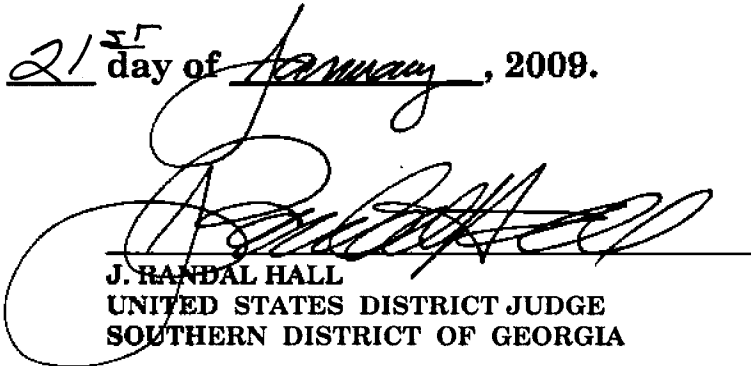 21st day of January, 2009.
J. RANDAL HALL
UNITED STATES DISTRICT JUDGE
SOUTHERN DISTRICT OF GEORGIA